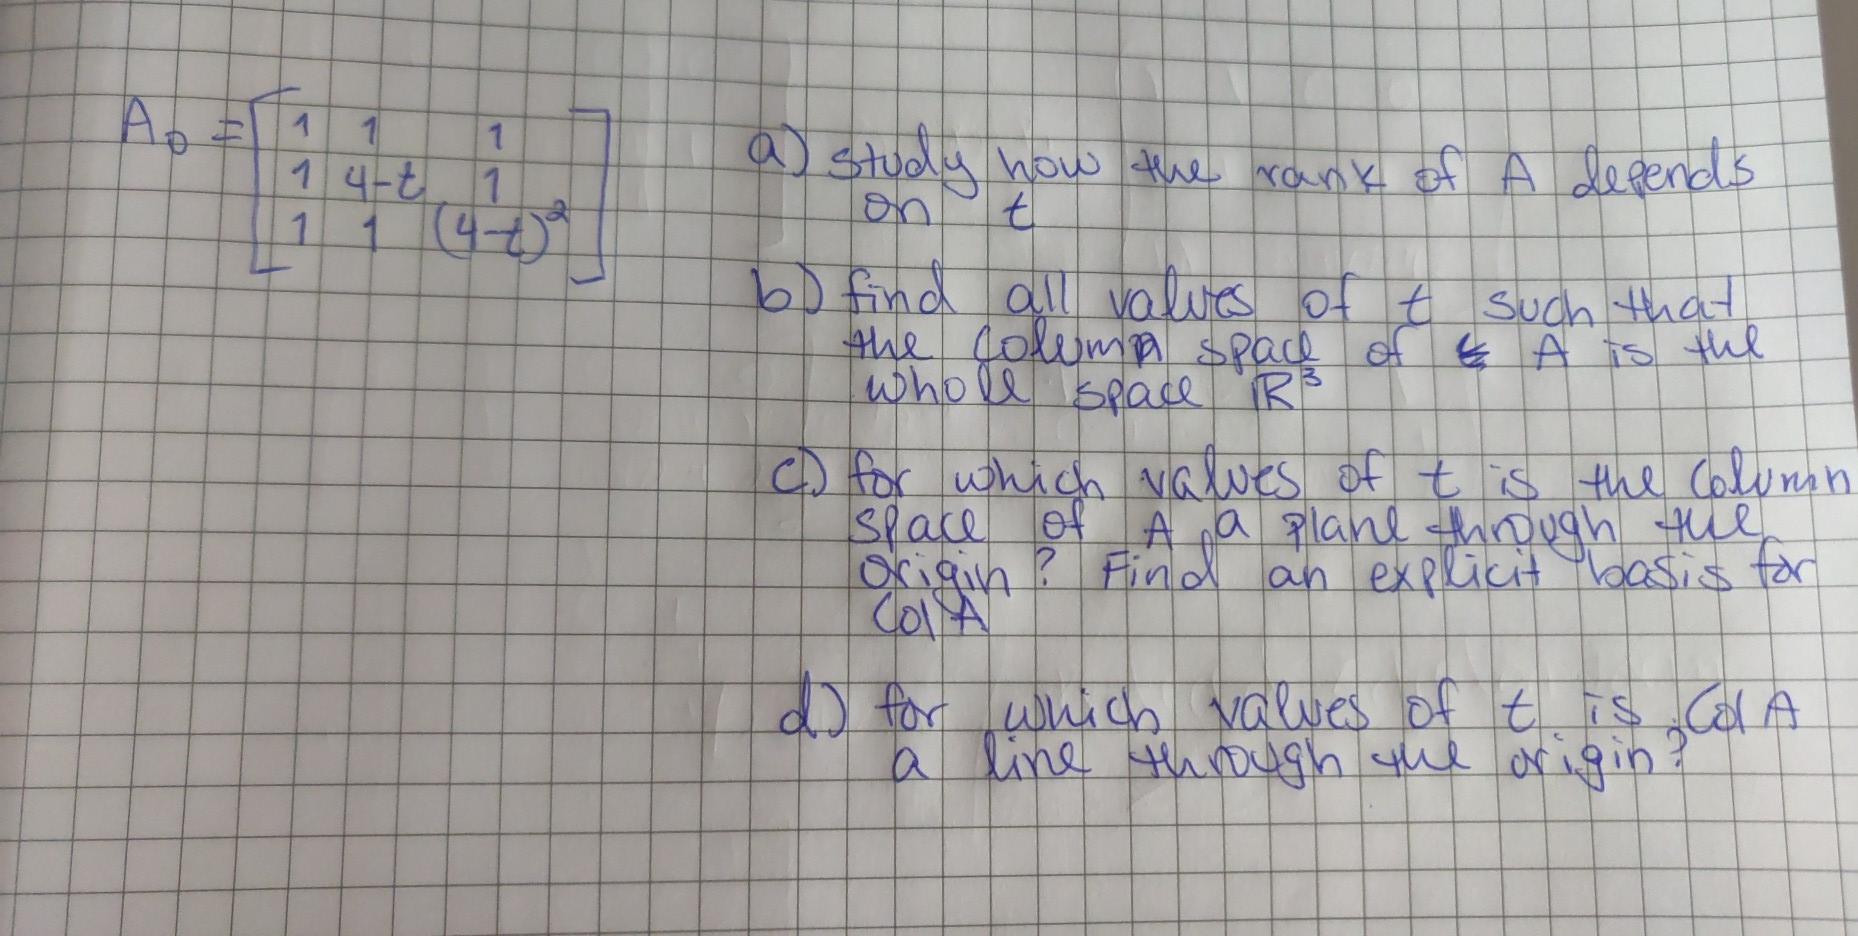 A₀ = [1 1 1
1 4-t 1
1 1 (4-t)²]
a) study how the rank of A depends
on t
b) find all values of t such that
the column space of A is the
whole space ℝ³
c) for which values of t is the column
space of A a plane through the
origin? Find an explicit basis for
Col A
d) for which values of t is Col A
a line through the origin?